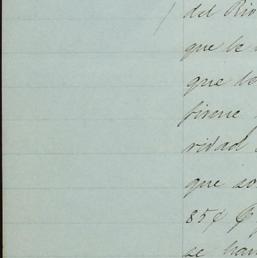 del Rio
que le
que de
firme
ridad
que so
85¢
se han